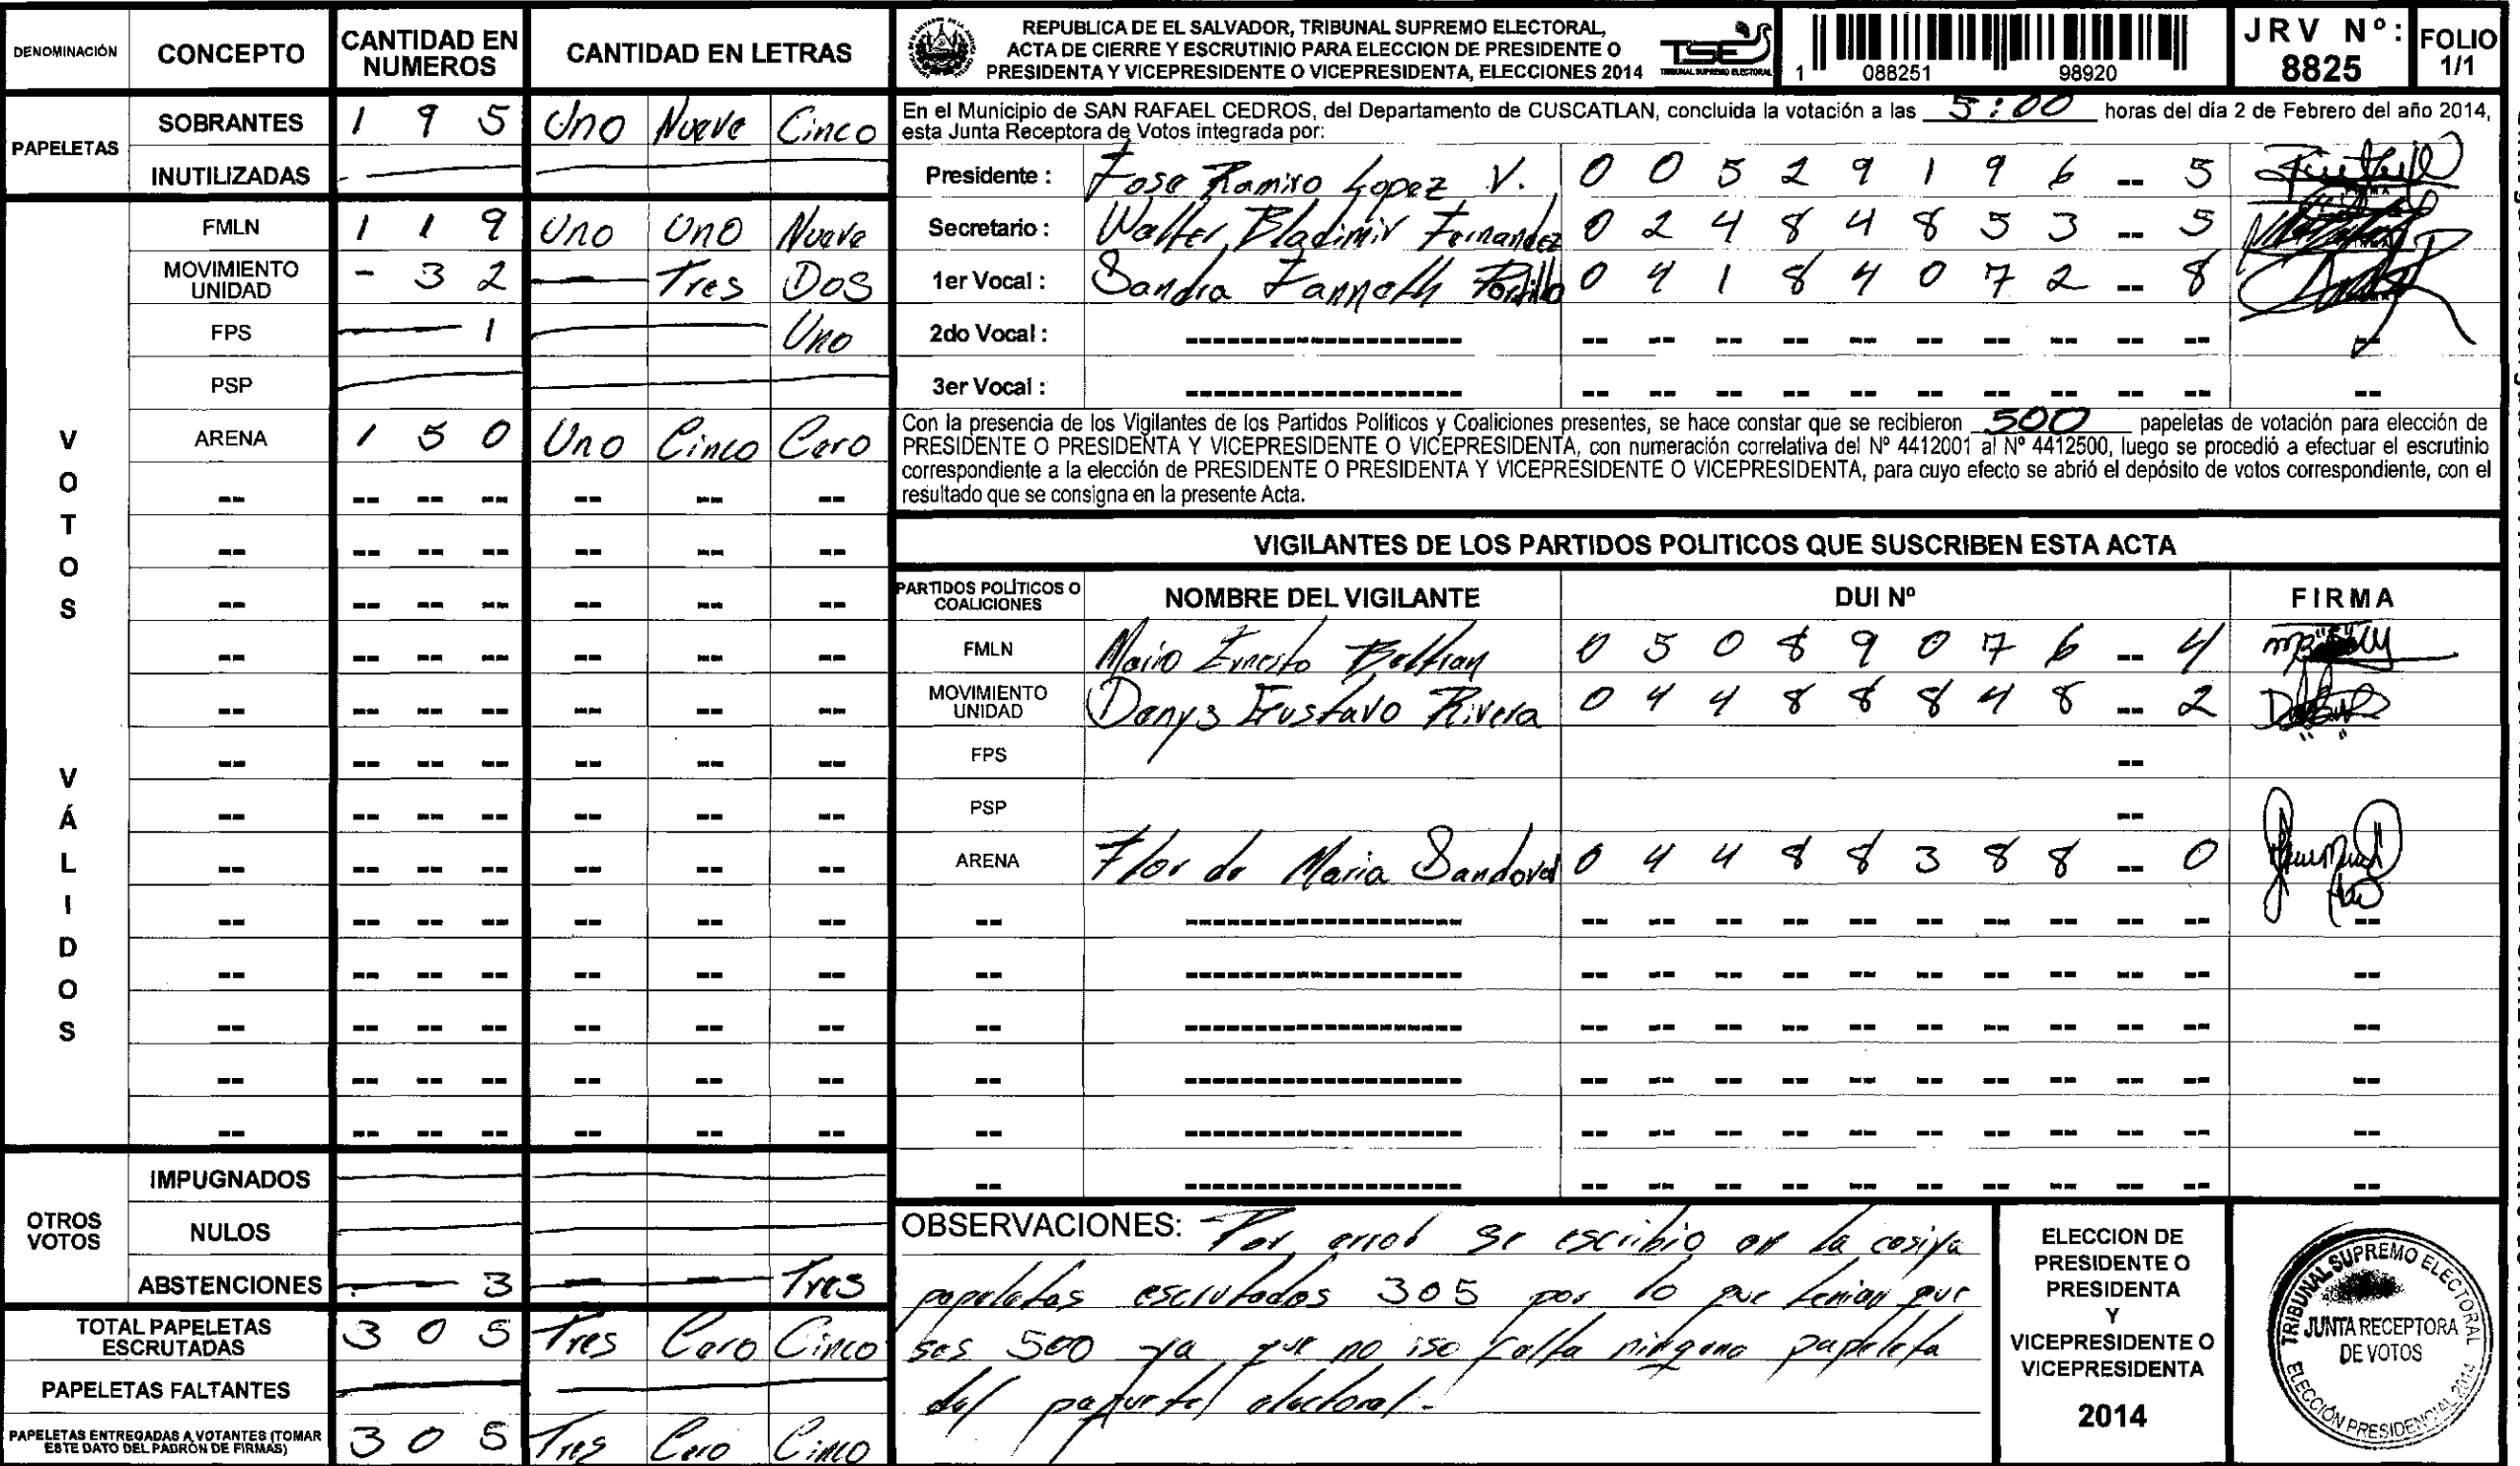 DENOMINACIÓN CONCEPTO CANTIDAD EN NUMEROS CANTIDAD EN LETRAS
PAPELETAS
SOBRANTES 1 9 5 Uno Nueve Cinco
INUTILIZADAS
VOTOS VÁLIDOS
FMLN 1 1 9 Uno Uno Nueve
MOVIMIENTO UNIDAD - 3 2 Tres Dos
FPS 1 Uno
PSP
ARENA 1 5 0 Uno Cinco Cero
OTROS VOTOS
IMPUGNADOS
NULOS
ABSTENCIONES 3 Tres
TOTAL PAPELETAS ESCRUTADAS 3 0 5 Tres Cero Cinco
PAPELETAS FALTANTES
PAPELETAS ENTREGADAS A VOTANTES (TOMAR ESTE DATO DEL PADRÓN DE FIRMAS) 3 0 5 Tres Cero Cinco
REPUBLICA DE EL SALVADOR, TRIBUNAL SUPREMO ELECTORAL,
ACTA DE CIERRE Y ESCRUTINIO PARA ELECCION DE PRESIDENTE O
PRESIDENTA Y VICEPRESIDENTE O VICEPRESIDENTA, ELECCIONES 2014
TSE
TRIBUNAL SUPREMO ELECTORAL
1 088251 98920
JRV Nº: 8825
FOLIO 1/1
En el Municipio de SAN RAFAEL CEDROS, del Departamento de CUSCATLAN, concluida la votación a las 5:00 horas del día 2 de Febrero del año 2014,
esta Junta Receptora de Votos integrada por:
Presidente : Jose Ramiro Lopez V. 0 0 5 2 9 1 9 6 -- 5
Secretario : Walter Bladimir Fernandez 0 2 4 8 4 8 5 3 -- 5
1er Vocal : Sandra Janneth Portillo 0 4 1 8 4 0 7 2 -- 8
2do Vocal :
3er Vocal :
Con la presencia de los Vigilantes de los Partidos Políticos y Coaliciones presentes, se hace constar que se recibieron 500 papeletas de votación para elección de
PRESIDENTE O PRESIDENTA Y VICEPRESIDENTE O VICEPRESIDENTA, con numeración correlativa del Nº 4412001 al Nº 4412500, luego se procedió a efectuar el escrutinio
correspondiente a la elección de PRESIDENTE O PRESIDENTA Y VICEPRESIDENTE O VICEPRESIDENTA, para cuyo efecto se abrió el depósito de votos correspondiente, con el
resultado que se consigna en la presente Acta.
VIGILANTES DE LOS PARTIDOS POLITICOS QUE SUSCRIBEN ESTA ACTA
PARTIDOS POLÍTICOS O COALICIONES NOMBRE DEL VIGILANTE DUI Nº FIRMA
FMLN Mairo Ernesto Beltran 0 5 0 8 9 0 7 6 -- 4
MOVIMIENTO UNIDAD Danys Gustavo Rivera 0 4 4 8 8 8 4 8 -- 2
FPS --
PSP --
ARENA Flor de Maria Sandoval 0 4 4 8 8 3 8 8 -- 0
OBSERVACIONES: Por error se escribio en la casiya
papeletas escrutados 305 por lo que tenian que
ser 500 ya que no iso falta ninguna papeleta
del paquetel electoral.-
ELECCION DE
PRESIDENTE O
PRESIDENTA
Y
VICEPRESIDENTE O
VICEPRESIDENTA
2014
TRIBUNAL SUPREMO ELECTORAL
JUNTA RECEPTORA
DE VOTOS
ELECCIÓN PRESIDENCIAL 2014